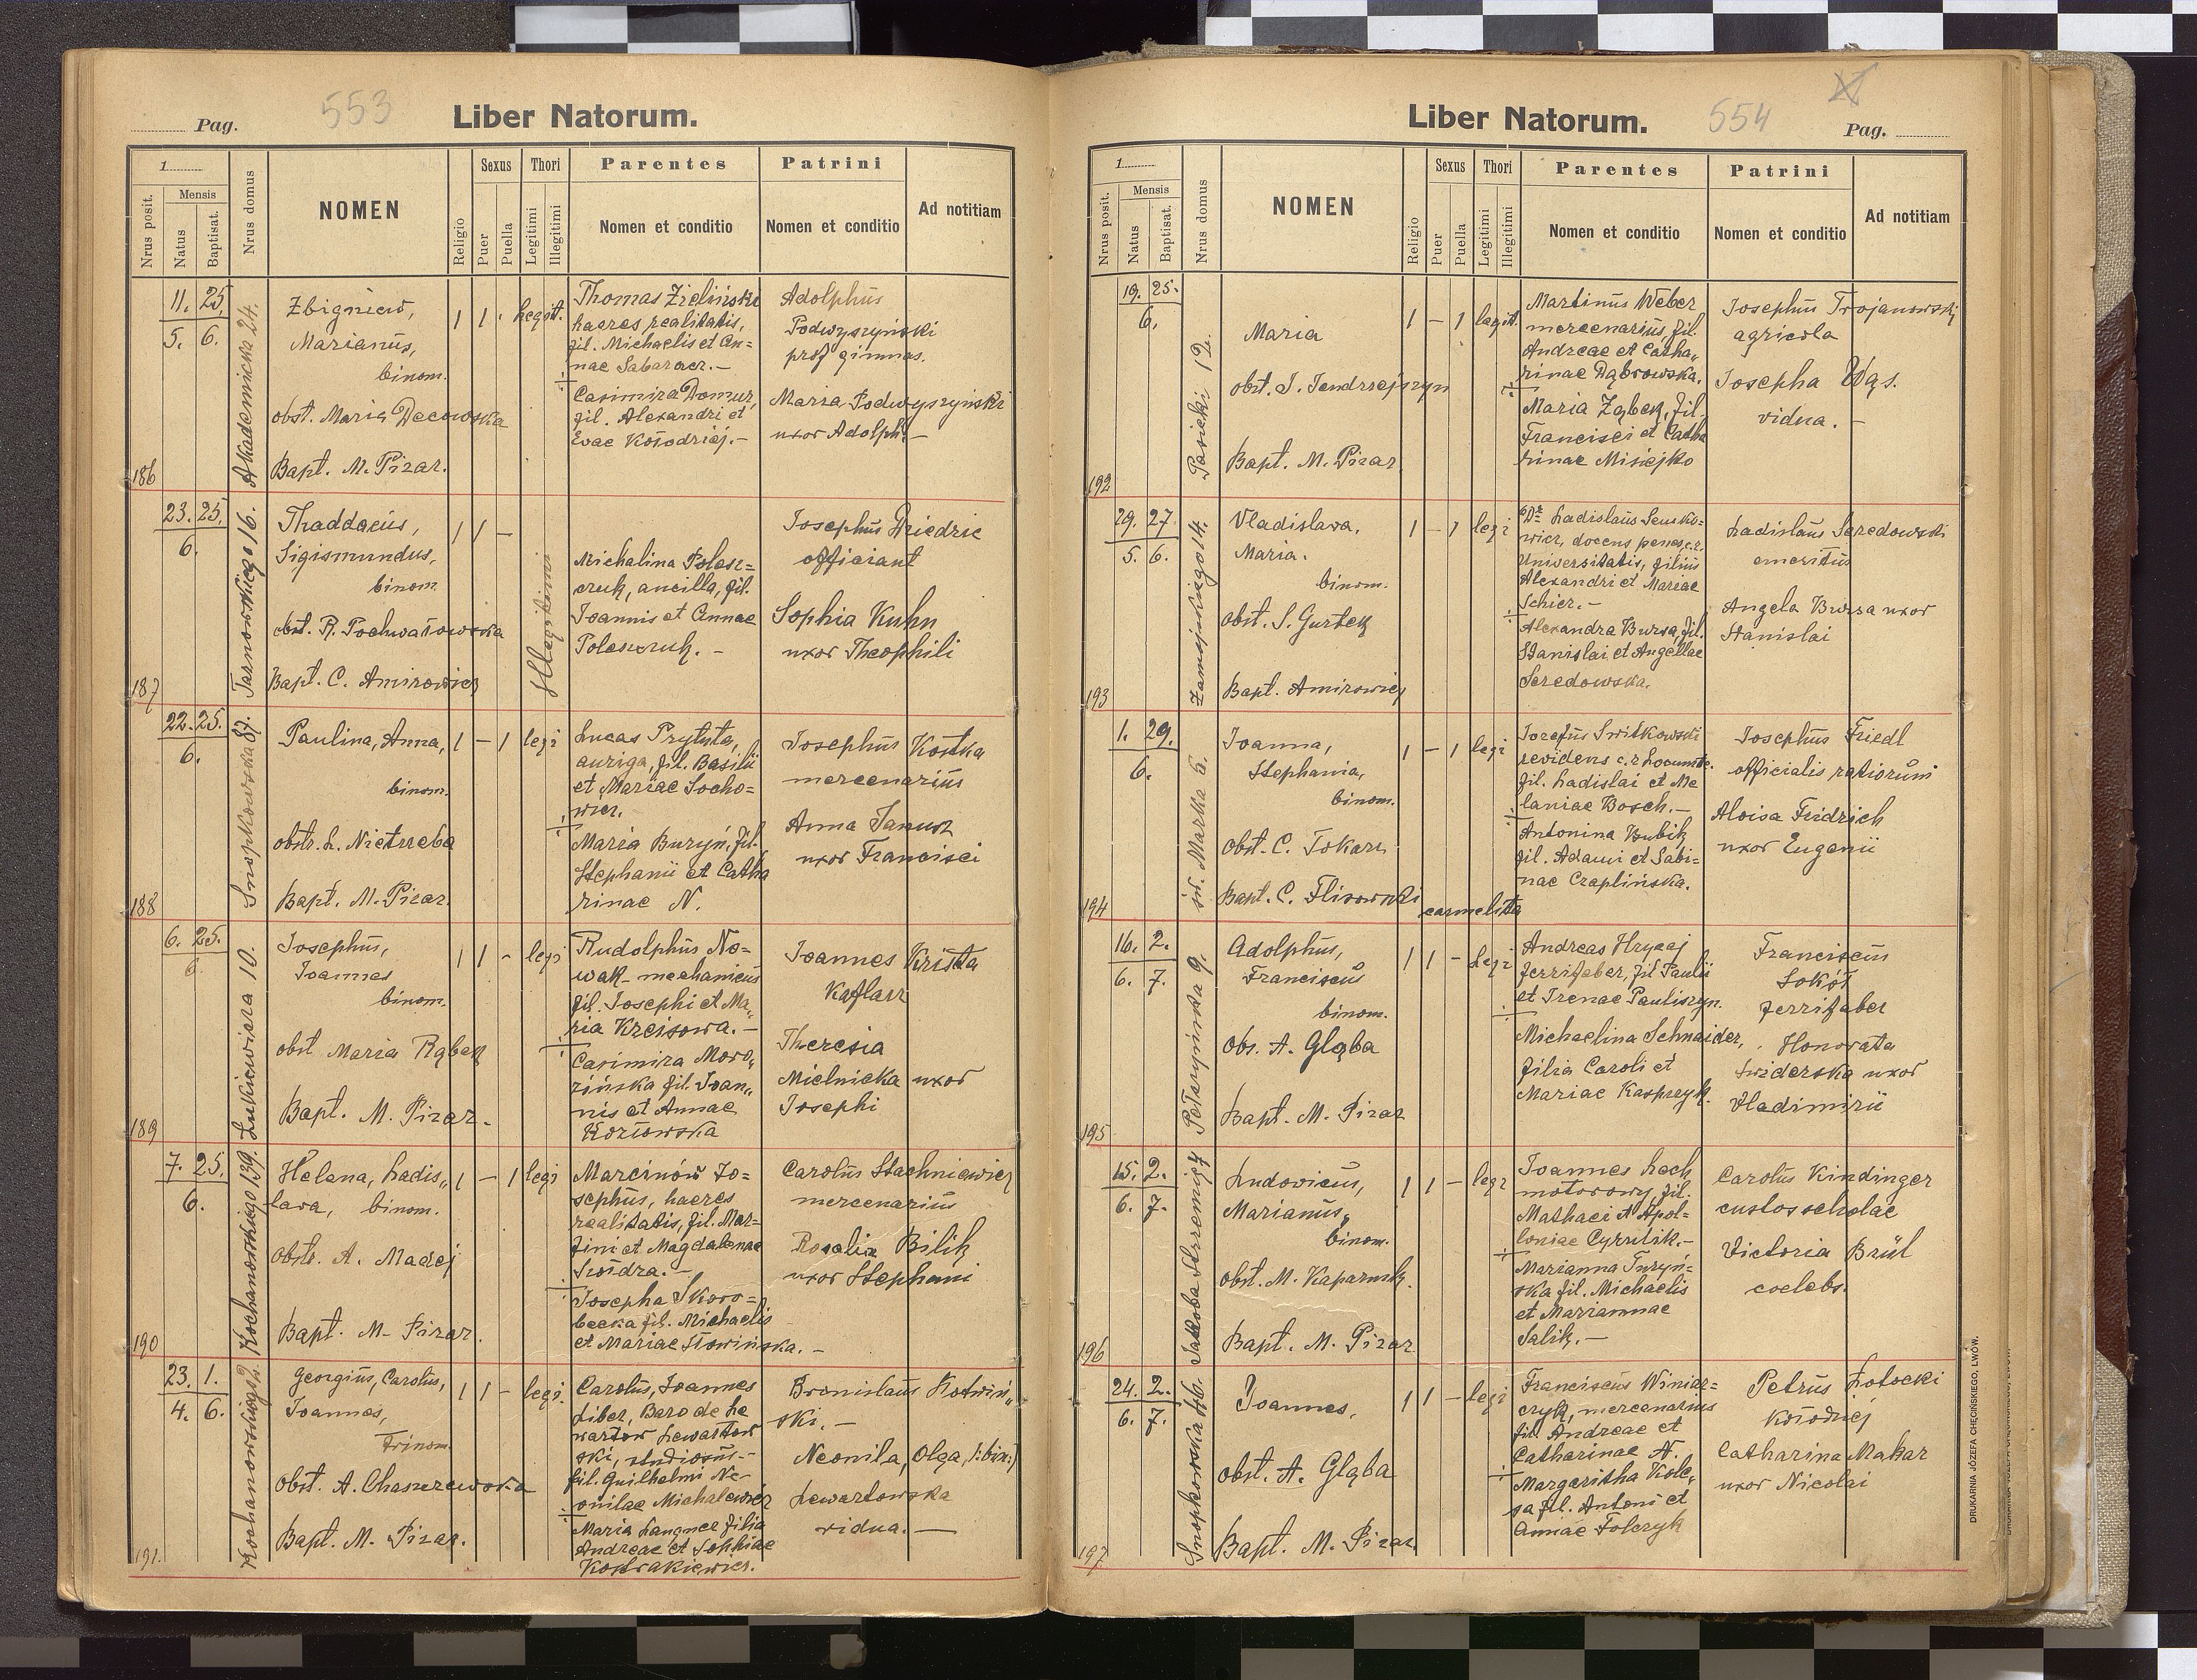 Pag. 553 Liber Natorum.
1
Nrus posit.
Mensis
Natus
Baptisat.
Nrus domus
NOMEN
Religio
Sexus
Puer
Puella
Thori
Legitimi
Illegitimi
Parentes
Nomen et conditio
Patrini
Nomen et conditio
Ad notitiam
186
11. 25.
5. 6.
Akademicka 24.
Zbigniew,
Marianus,
binom.
obst. Maria Decowska
Bapt. M. Pizar.
1 1 . Legit.
Thomas Zieliński
haeres realitatis,
fil. Michaelis et An=
nae Sabaraer.-
Casimira Domur,
fil. Alexandri et
Evae Kołodziej.-
Adolphus
Podwyszyński
prof gimnas.
Maria Podwyszyński
uxor Adolphi-
187
23. 25.
6.
Tarnowskiego 16.
Thaddaeus,
Sigismundus,
binom.
obst. R. Pochwatowska
Bapt. C. Amirowicz
1 1 -
Illegitimi
Michalina Polesz=
czuk, ancilla, fil.
Joannis et Annae
Poleszczuk. -
Josephus Driedric
officiant
Sophia Kuhn
uxor Theophili
188
22. 25.
6.
Snopkowska 37.
Paulina, Anna,
binom.
obstr. L. Nietrzeba
Bapt. M. Pizar.
1 - 1 legi
Lucas Prytuta,
auriga, fil. Basilii
et Mariae Socho=
wicz.
Maria Buryń, fil.
Stephanii et Catha
rinae N.
Josephus Kostka
mercenarius
Anna Janusz
uxor Francisci
189
6. 25.
6.
Łukiewicza 10.
Josephus,
Joannes
binom.
obst Maria Rąbek
Bapt. M. Pizar.
1 1 - legi
Rudolphus No=
wak - mechanicus
fil. Josephi et Ma„
ria Kreisowa.-
Casimira Moro„
zińska fil. Joan„
nis et Annae
Kozłowska
Joannes Krista
Kaflarz
Theresia
Mielnicka uxor
Josephi
190
7. 25.
6.
Kochanowskiego 139.
Helena, Ladis„
lava, binom.
Obstr. A. Madej
Bapt. M. Pizar.
1 - 1 legi
Marcinów Jo=
sephus, haeres
realitatis, fil. Mar=
tini et Magdalenae
Swidra.-
Josepha Skoro=
becka fil. Michaelis
et Mariae Słowińska. -
Carolus Stachniewicz
mercenarius
Rosalia Bilik
uxor Stephani
191.
23. 1.
4. 6.
Kochanowskiego 2.
Georgius, Carolus,
Joannes,
Trinom.
obst. A. Chaszczewska
Bapt. M. Pizar.
1 1 - legi.
Carolus, Joannes
Liber, Baro de Le
wartow Lewartow
ski, studiosus-
fil. Guilhelmi Ne-
onilae Michalewicz
Maria Langner filia
Andreae et Sophiae
Kostrakiewicz.
Bronislaus Kotwiń„
ski. -
Neonila, Olga /:bin:/
Lewartowska
vidua. -
Liber Natorum. 554 Pag.
1
Nrus posit.
Mensis
Natus
Baptisat.
Nrus domus
NOMEN
Religio
Sexus
Puer
Puella
Thori
Legitimi
Illegitimi
Parentes
Nomen et conditio
Patrini
Nomen et conditio
Ad notitiam
192
19. 25.
6.
Pasieki 12.
Maria
obst. J. Jendrzejszyn
Bapt. M. Pizar
1 - 1 legit.
Martinus Weber
mercenarius, fil.
Andreae et Catha„
rinae Dąbrowska.
Maria Ząbek, fil.
Francisci et Catha
rinae Misiejko
Josephus Trojanowski
agricola
Josepha Wąs.
vidua. -
193
29. 27.
5. 6.
Zamojskiego 14.
Vladislava,
Maria.
binom.
obst. S. Gurtek
Bapt. Amirowicz
1 - 1 legi
Dr Ladislaus Senko=
wicz, docens penes c.r.
Universitatis, filius
Alexandri et Mariae
Schier.-
Alexandra Bursa, fil.
Stanislai et Angellae
Seredowska.
Ladislaus Seredowski
emeritus
Angela Bursa uxor
Stanislai
194
1. 29.
6.
św. Marka 5.
Joanna,
Stephania,
binom.
Obst. C. Tokarz
Bapt. C. Flisowski carmelita
1 - 1 legi
Josefus Switkowski
residens c.r. Locumte.
fil. Ladislai et Me
laniae Bosch.-
Antonina Bubik
fil. Adami et Sabi=
nae Czaplińska.
Josephus Friedl
officialis ratiorum
Aloisa Fridrich
uxor Eugenii
195
16. 2.
6. 7.
Pełczyńska 9.
Adolphus,
Franciscus
binom.
Obs. A. Głąba
Bapt. M. Pizar
1 1 - legi
Andreas Hrycaj
ferrifaber, fil Paulii
et Irenae Pauliszyn.
Michaelina Schnaider,
filia Caroli et
Mariae Kasprzyk.
Franciscus
Sokół
ferrifaber
Honorata
Swiderska uxor
Vladimirii
196
15. 2.
6. 7.
Jakóba Strzemię 4
Ludovicus,
Marianus,
binom.
Obst. M. Kaparnik.
Bapt. M. Pizar
1 1 - legi
Joannes Lech
motorowy, fil.
Mathaei et Apol=
loniae Cyrulik.-
Marianna Turyń=
ska fil. Michaelis
et Mariannae
Salik.-
Carolus Kindinger
custos scholae
Victoria Brül
coelebs.
197
24. 2.
6. 7.
Snopkowska 46.
Joannes,
obst. A. Głąba
Bapt. M. Pizar
1 1 - legi
Franciscus Winiar=
czyk, mercenarius
fil Andreae et
Catharinae N.
Margaritha Kole„
sa fil. Antoni et
Annae Tolczyk
Petrus Łotocki
Kołodziej
Catharina Makar
uxor Nicolai
DRUKARNIA JÓZEFA CHĘCIŃSKIEGO, LWÓW.